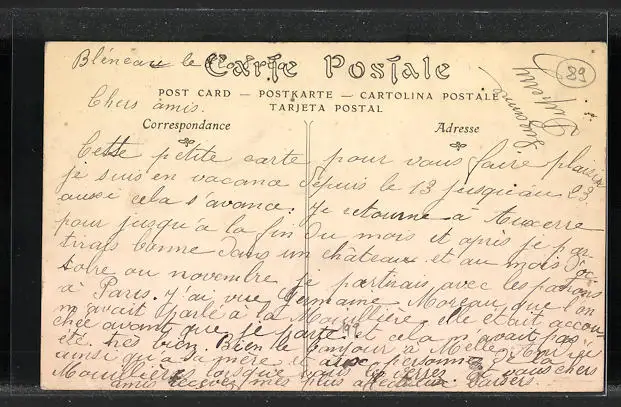 Bléneau le
Carte Postale
89
POST CARD — POSTKARTE — CARTOLINA POSTALE
TARJETA POSTAL
Chers amis.
Correspondance
Adresse
Suzanne
Cette petite carte pour vous faire plaisir
je suis en vacance depuis le 13 jusqu'au 23.
aussi cela s'avance. Je retourne à Auxerre
pour jusqu'à la fin du mois et après je par-
tirais bonne dans un château et au mois d'oc-
tobre ou novembre je partirais avec les patrons
à Paris. J'ai vue Germaine Moreau que l'on
m'avait parlé à la Mouillère elle était accou-
chée avant que je parte et cela m'avait pas
été très bien. Bien le bonjour à
ainsi qu'à sa mère et personnes
lorsque vous les verrez et vous chers
amis recevez mes plus affectueux baisers.